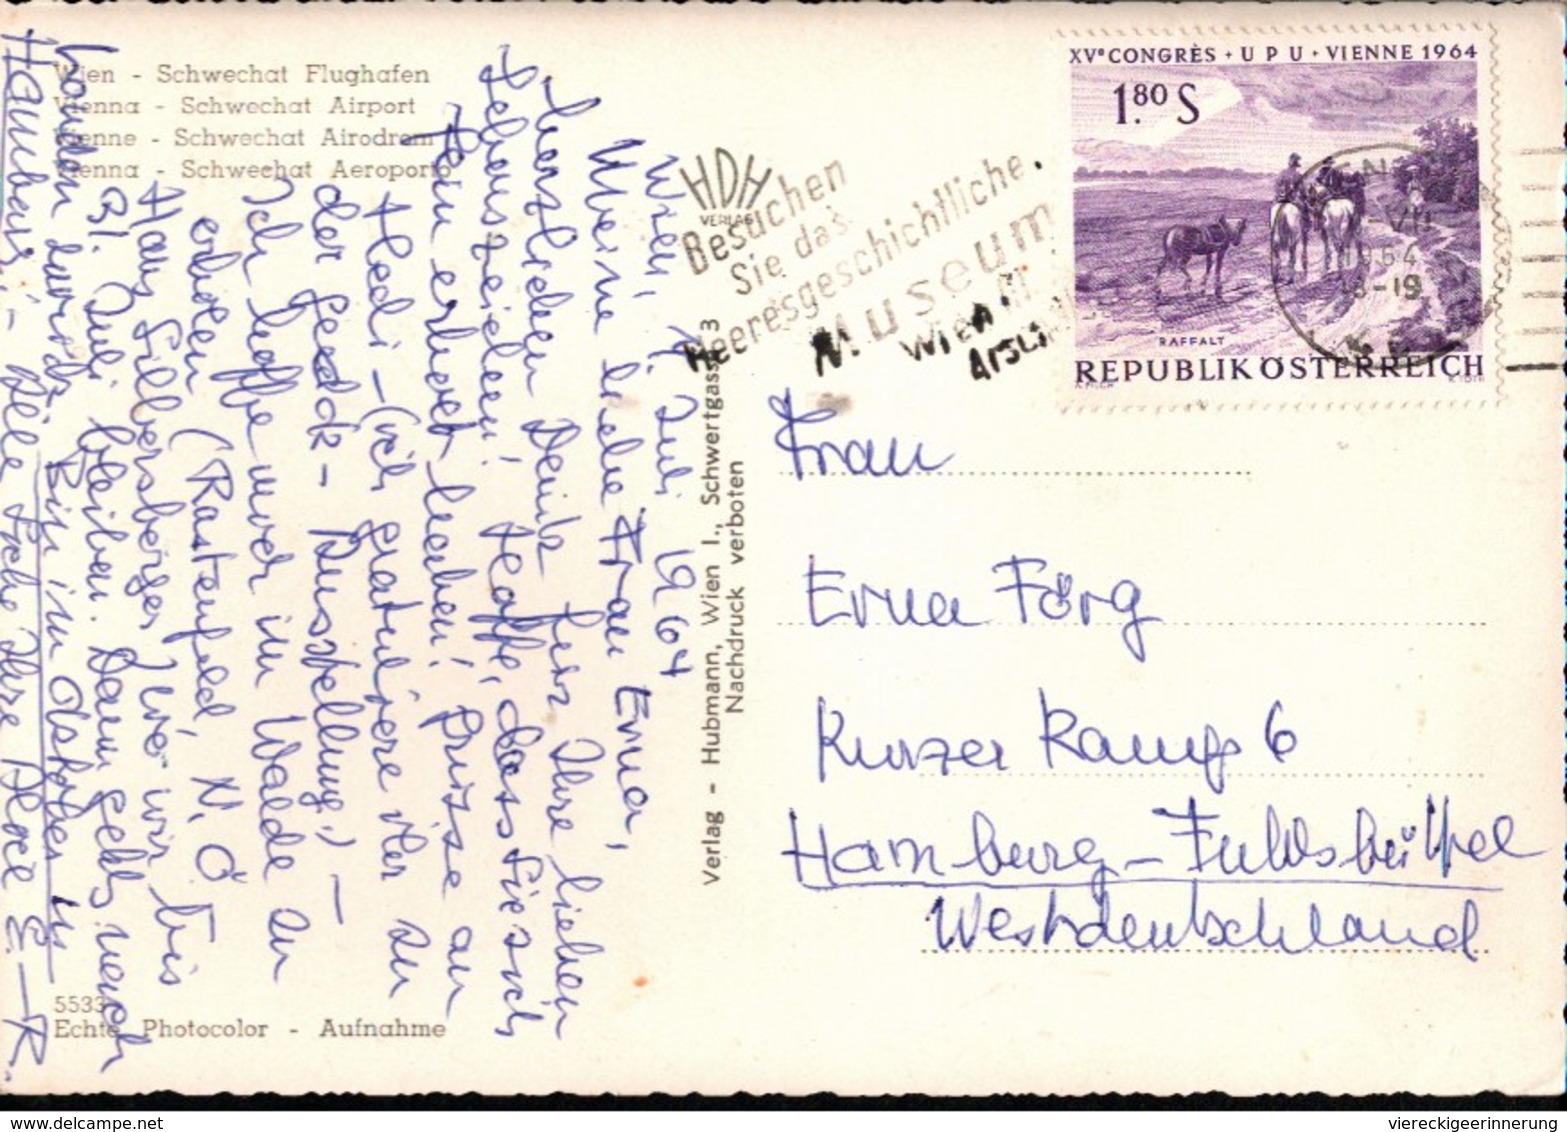 Wien - Schwechat Flughafen
Vienna - Schwechat Airport
Vienne - Schwechat Airodrom
Vienna - Schwechat Aeroporto
Wien, Juli 1964
Meine liebe Frau Erna,
herzlichen Dank für Ihre lieben
Lebenszeichen! Hoffe, dass Sie sich
fein erholt haben! Grüsse an
Hedi - (ich gratuliere ihr zu
der Ausstellung) -
Ich hoffe nur im Walde zu
erholen (Rastenfeld, N. Ö
Haus Silbersberger) wo wir bis
31. Juli bleiben. Dann gehts nach
London Bin im Oktober in
Hamburg! - Alles Liebe Ihre
5533
Echte Photocolor - Aufnahme
Verlag - Hubmann, Wien I., Schwertgasse 3
Nachdruck verboten
HDH
VERLAG
Besuchen
Sie das
Heeresgeschichtliche
Museum
Wien
XVe CONGRÈS + UPU + VIENNE 1964
1.80 S
RAFFALT
REPUBLIK ÖSTERREICH
WIEN
VII
1964
18-19
Frau
Erna Förg
Kurzer Kamp 6
Hamburg - Fuhlsbüttel
Westdeutschland
viereckigeerinnerung